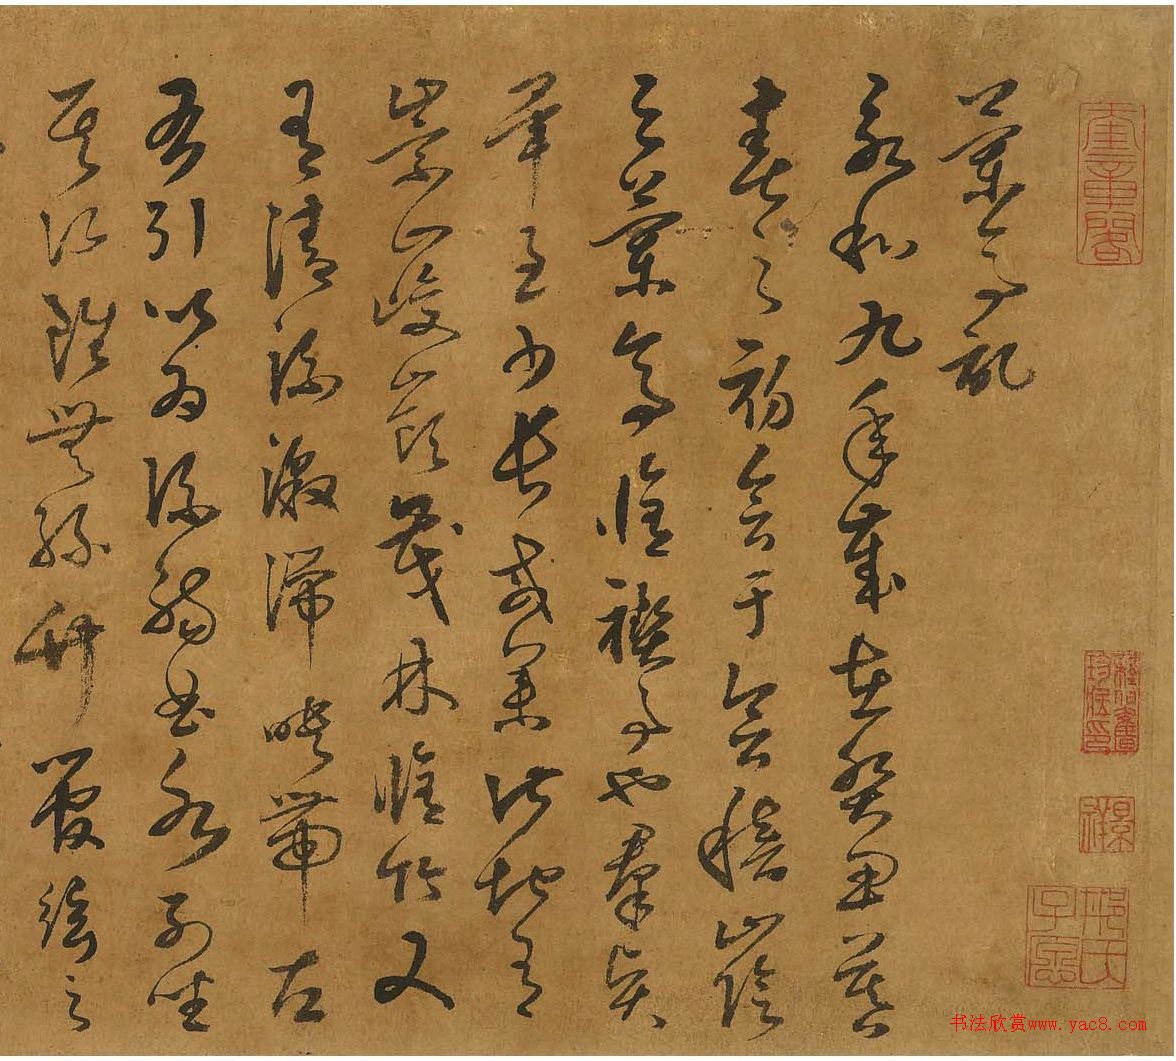 奎章閣
蘭亭記
永和九年歲在癸丑暮
春之初會于會稽山陰
之蘭亭脩禊事也羣賢
畢至少長咸集此地有
崇山峻嶺茂林脩竹又
有清流激湍暎帶左
右引以為流觴曲水列坐
其次雖無絲竹管絃之
邢氏子愿
书法欣赏www.yac8.com